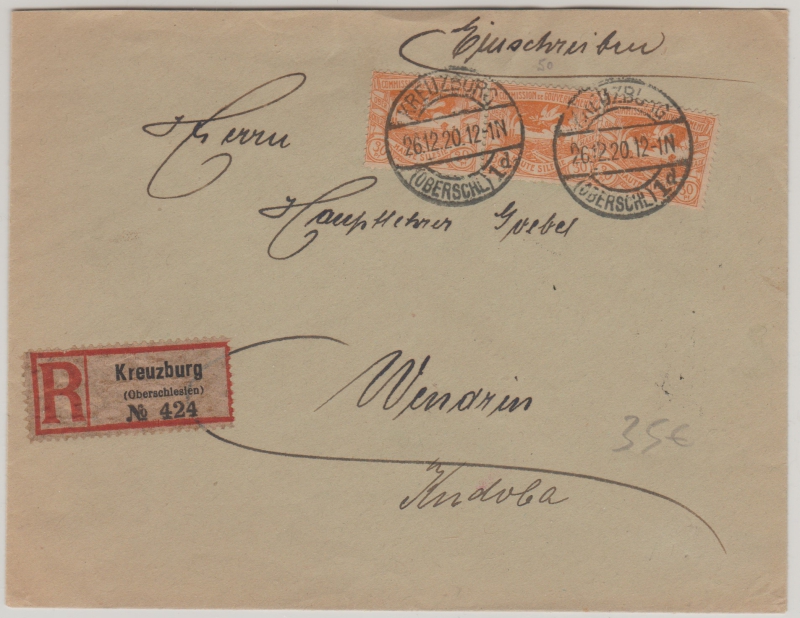 Einschreiben
50
COMMISSION DE GOUV
KREUZBURG
26.12.20.12-1N
(OBERSCHL) 1d
KREUZBURG
26.12.20.12-1N
(OBERSCHL) 1d
Herrn
Hauptlehrer Goebel
R
Kreuzburg
(Oberschlesien)
№ 424
Wendrin
35€